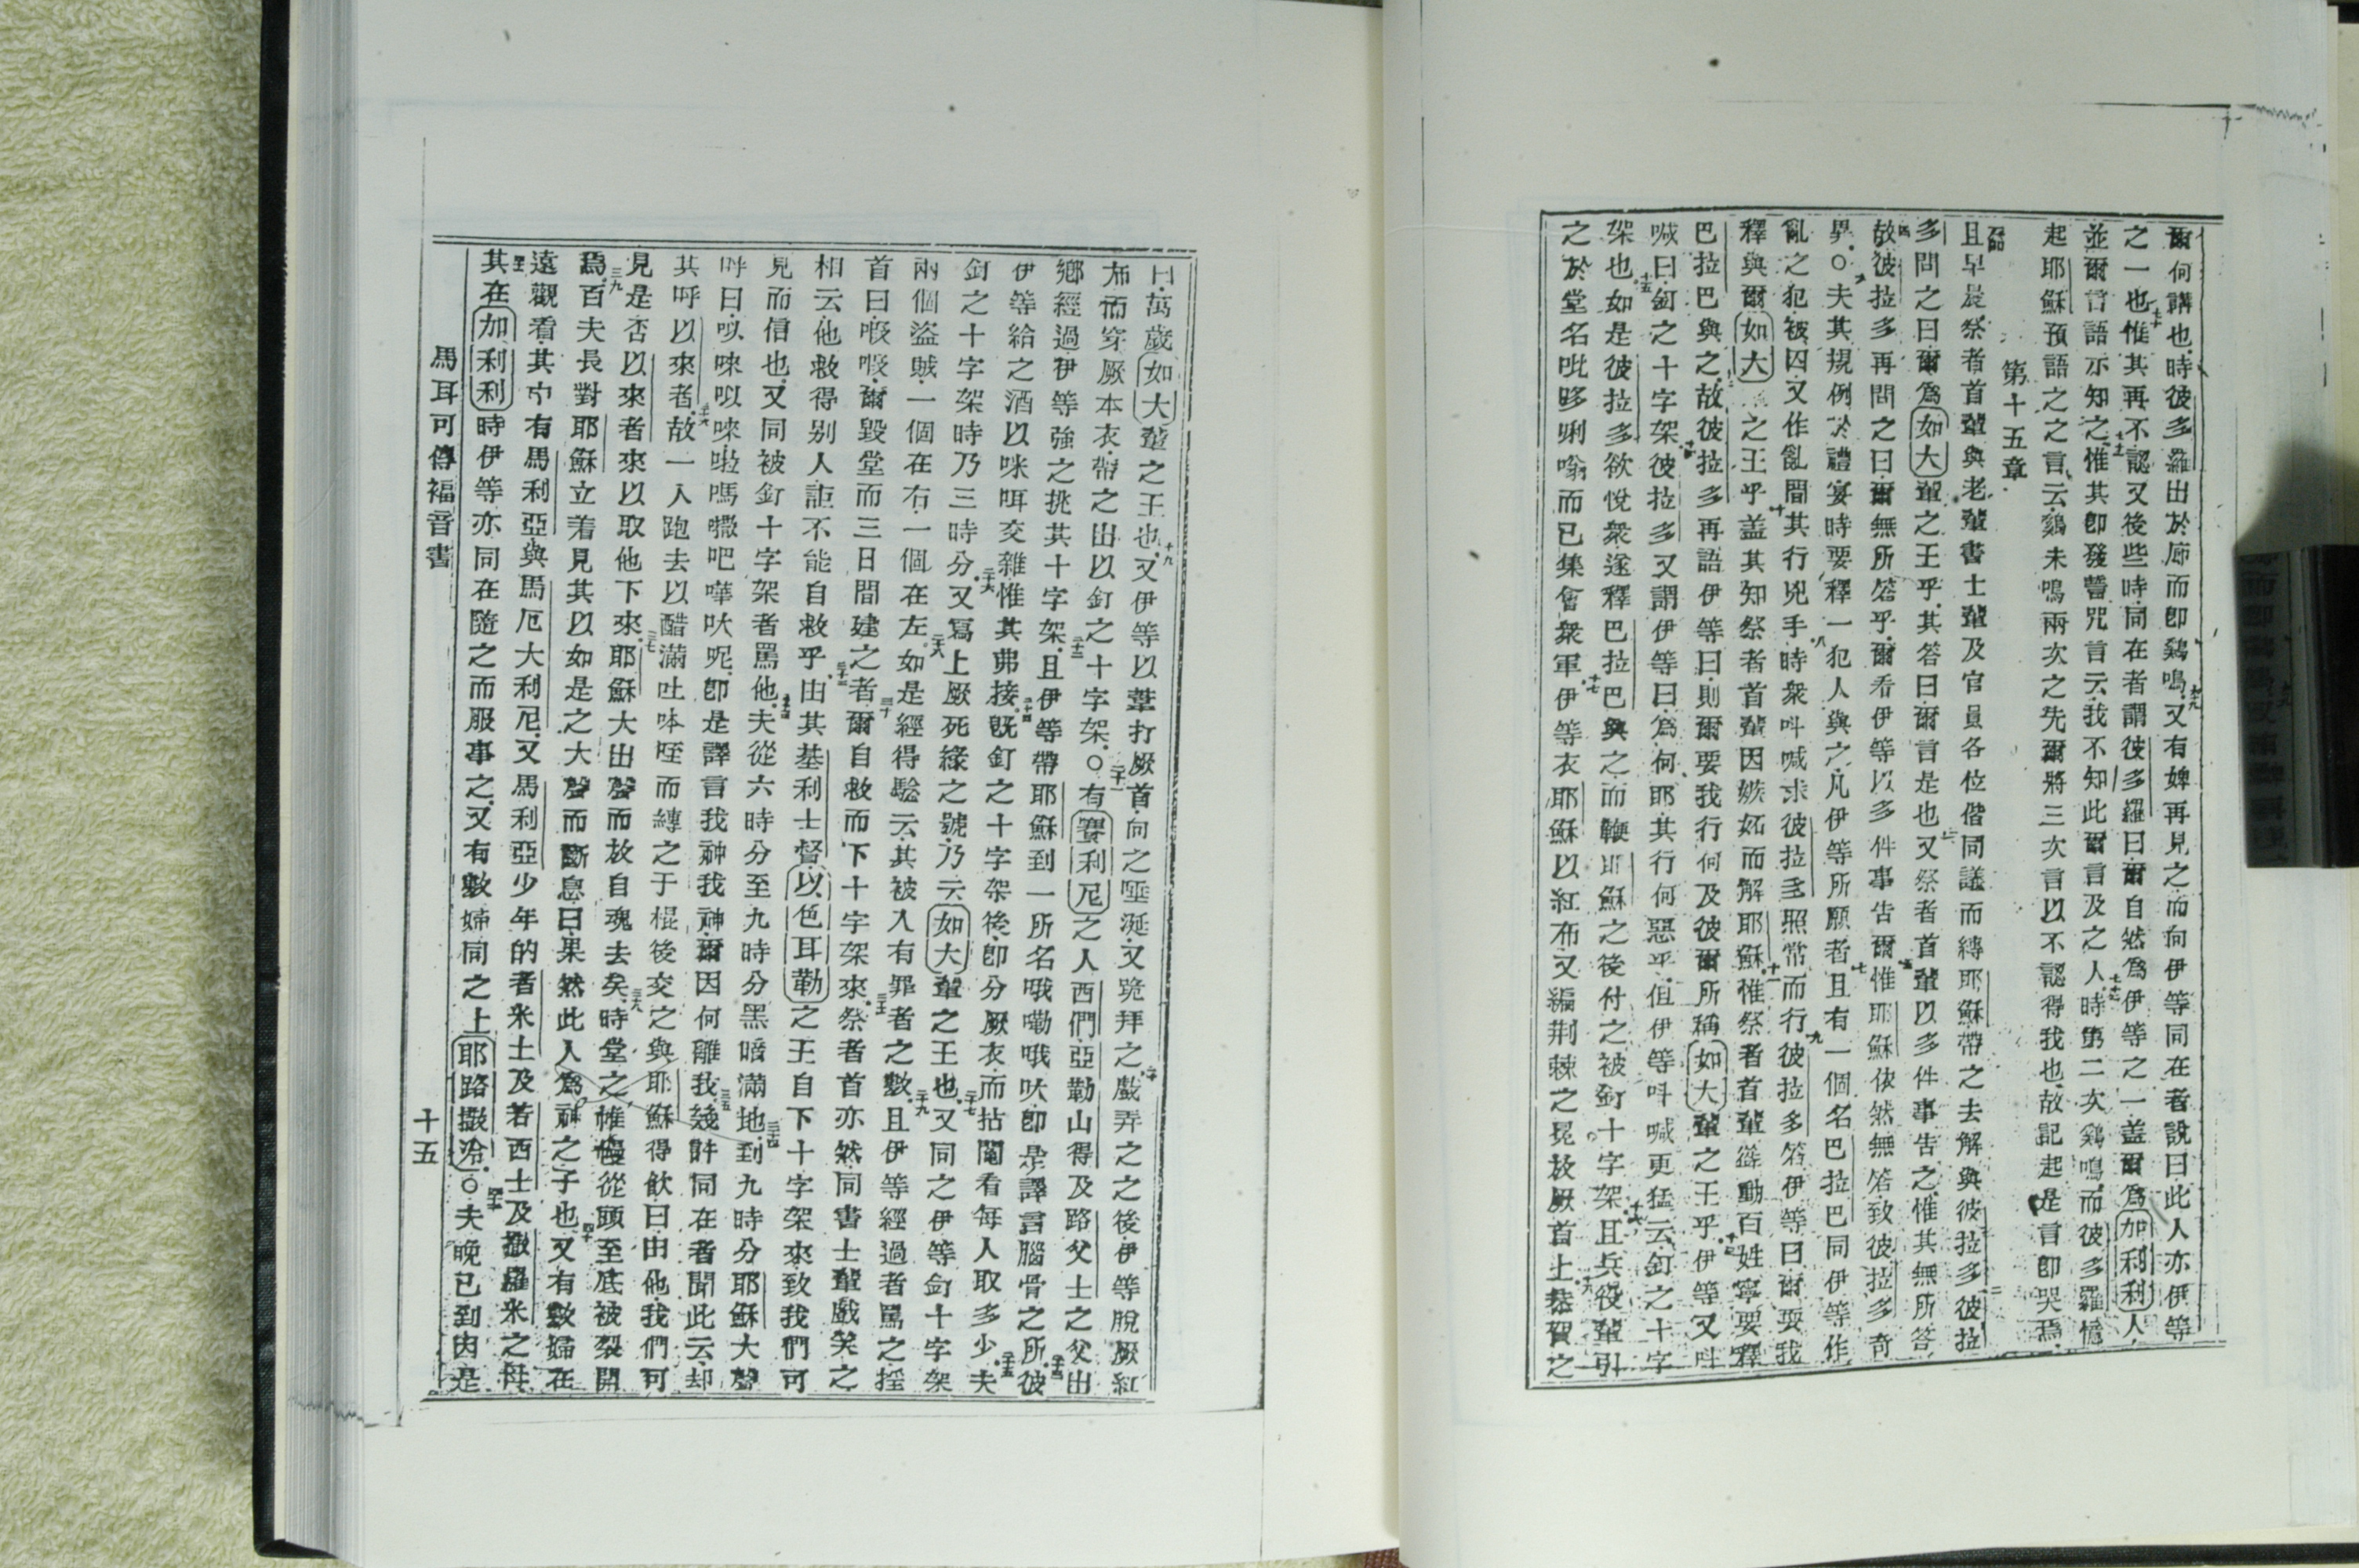 爾何講也時彼多羅出於廊而卽鷄鳴又有婢再見之而向伊等同在者說曰此人亦伊等
之一也惟其再不認又後些時同在者謂彼多羅曰爾自然爲伊等之一盖爾爲加利利人
並爾言語示知之惟其卽發誓咒言云我不知此爾言及之人時第二次鷄鳴而彼多羅憶
起耶穌預語之之言云鷄未鳴兩次之先爾將三次言以不認得我也故記起是言卽哭焉
第十五章
且早晨祭者首輩與老輩書士輩及官員各位偕同議而縳耶穌帶之去解與彼拉多彼拉
多問之曰爾爲如大輩之王乎其答曰爾言是也又祭者首輩以多件事告之惟其無所答
故彼拉多再問之曰爾無所答乎爾看伊等以多件事告爾惟耶穌依然無答致彼拉多奇
異○夫其規例於禮宴時要釋一犯人與之凡伊等所願者且有一個名巴拉巴同伊等作
亂之犯被囚又作亂間其行兇手時衆呌喊求彼拉多照常而行彼拉多答伊等曰爾要我
釋與爾如大之王乎盖其知祭者首輩因嫉妬而解耶穌惟祭者首輩聳動百姓寧要釋
巴拉巴與之故彼拉多再語伊等曰則爾要我行何及彼爾所稱如大輩之王乎伊等又呌
喊曰釘之十字架彼拉多又謂伊等曰爲何耶其行何惡乎但伊等呌喊更猛云釘之十字
架也如是彼拉多欲悅衆遂釋巴拉巴與之而鞭耶穌之後付之被釘十字架且兵役輩引
之於堂名吡哆唎嗡而已集會衆軍伊等衣耶穌以紅布又編荆棘之冕放厥首上恭賀之
曰萬歲如大輩之王也又伊等以葦打厥首向之唾涎又跪拜之戲弄之之後伊等脫厥紅
布而穿厥本衣帶之出以釘之十字架○有賽利尼之人西們亞勒山得及路父士之父出
鄉經過伊等強之挑其十字架且伊等帶耶穌到一所名哦嘞哦吠卽是譯言腦骨之所彼
伊等給之酒以咪咡交雜惟其弗接旣釘之十字架後卽分厥衣而拈鬮看每人取多少夫
釘之十字架時乃三時分又寫上厥死緣之號乃云如大輩之王也又同之伊等釘十字架
兩個盜賊一個在右一個在左如是經得驗云其被入有罪者之數且伊等經過者罵之搖
首曰嘏嘏爾毀堂而三日間建之者爾自救而下十字架來祭者首亦然同書士輩戲笑之
相云他救得别人詎不能自救乎由其基利士督以色耳勒之王自下十字架來致我們可
見而信也又同被釘十字架者罵他夫從六時分至九時分黑暗滿地到九時分耶穌大聲
呼曰㕥唻㕥唻啦嗎𡂡吧嘩吠呢卽是譯言我神我神爾因何離我幾許同在者聞此云却
其呼以來者故一人跑去以醋滿吐呠咥而縳之于棍後交之與耶穌得飲曰由他我們可
見是否以來者來以取他下來耶穌大出聲而放自魂去矣時堂之帷幔從頭至底被裂開
焉百夫長對耶穌立着見其以如是之大聲而斷息曰果然此人爲神之子也又有數婦在
遠觀看其中有馬利亞與馬厄大利尼又馬利亞少年的者米士及若西士及撒羅米之母
其在加利利時伊等亦同在隨之而服事之又有數婦同之上耶路撒冷○夫晚已到因是
馬耳可傳福音書 十五